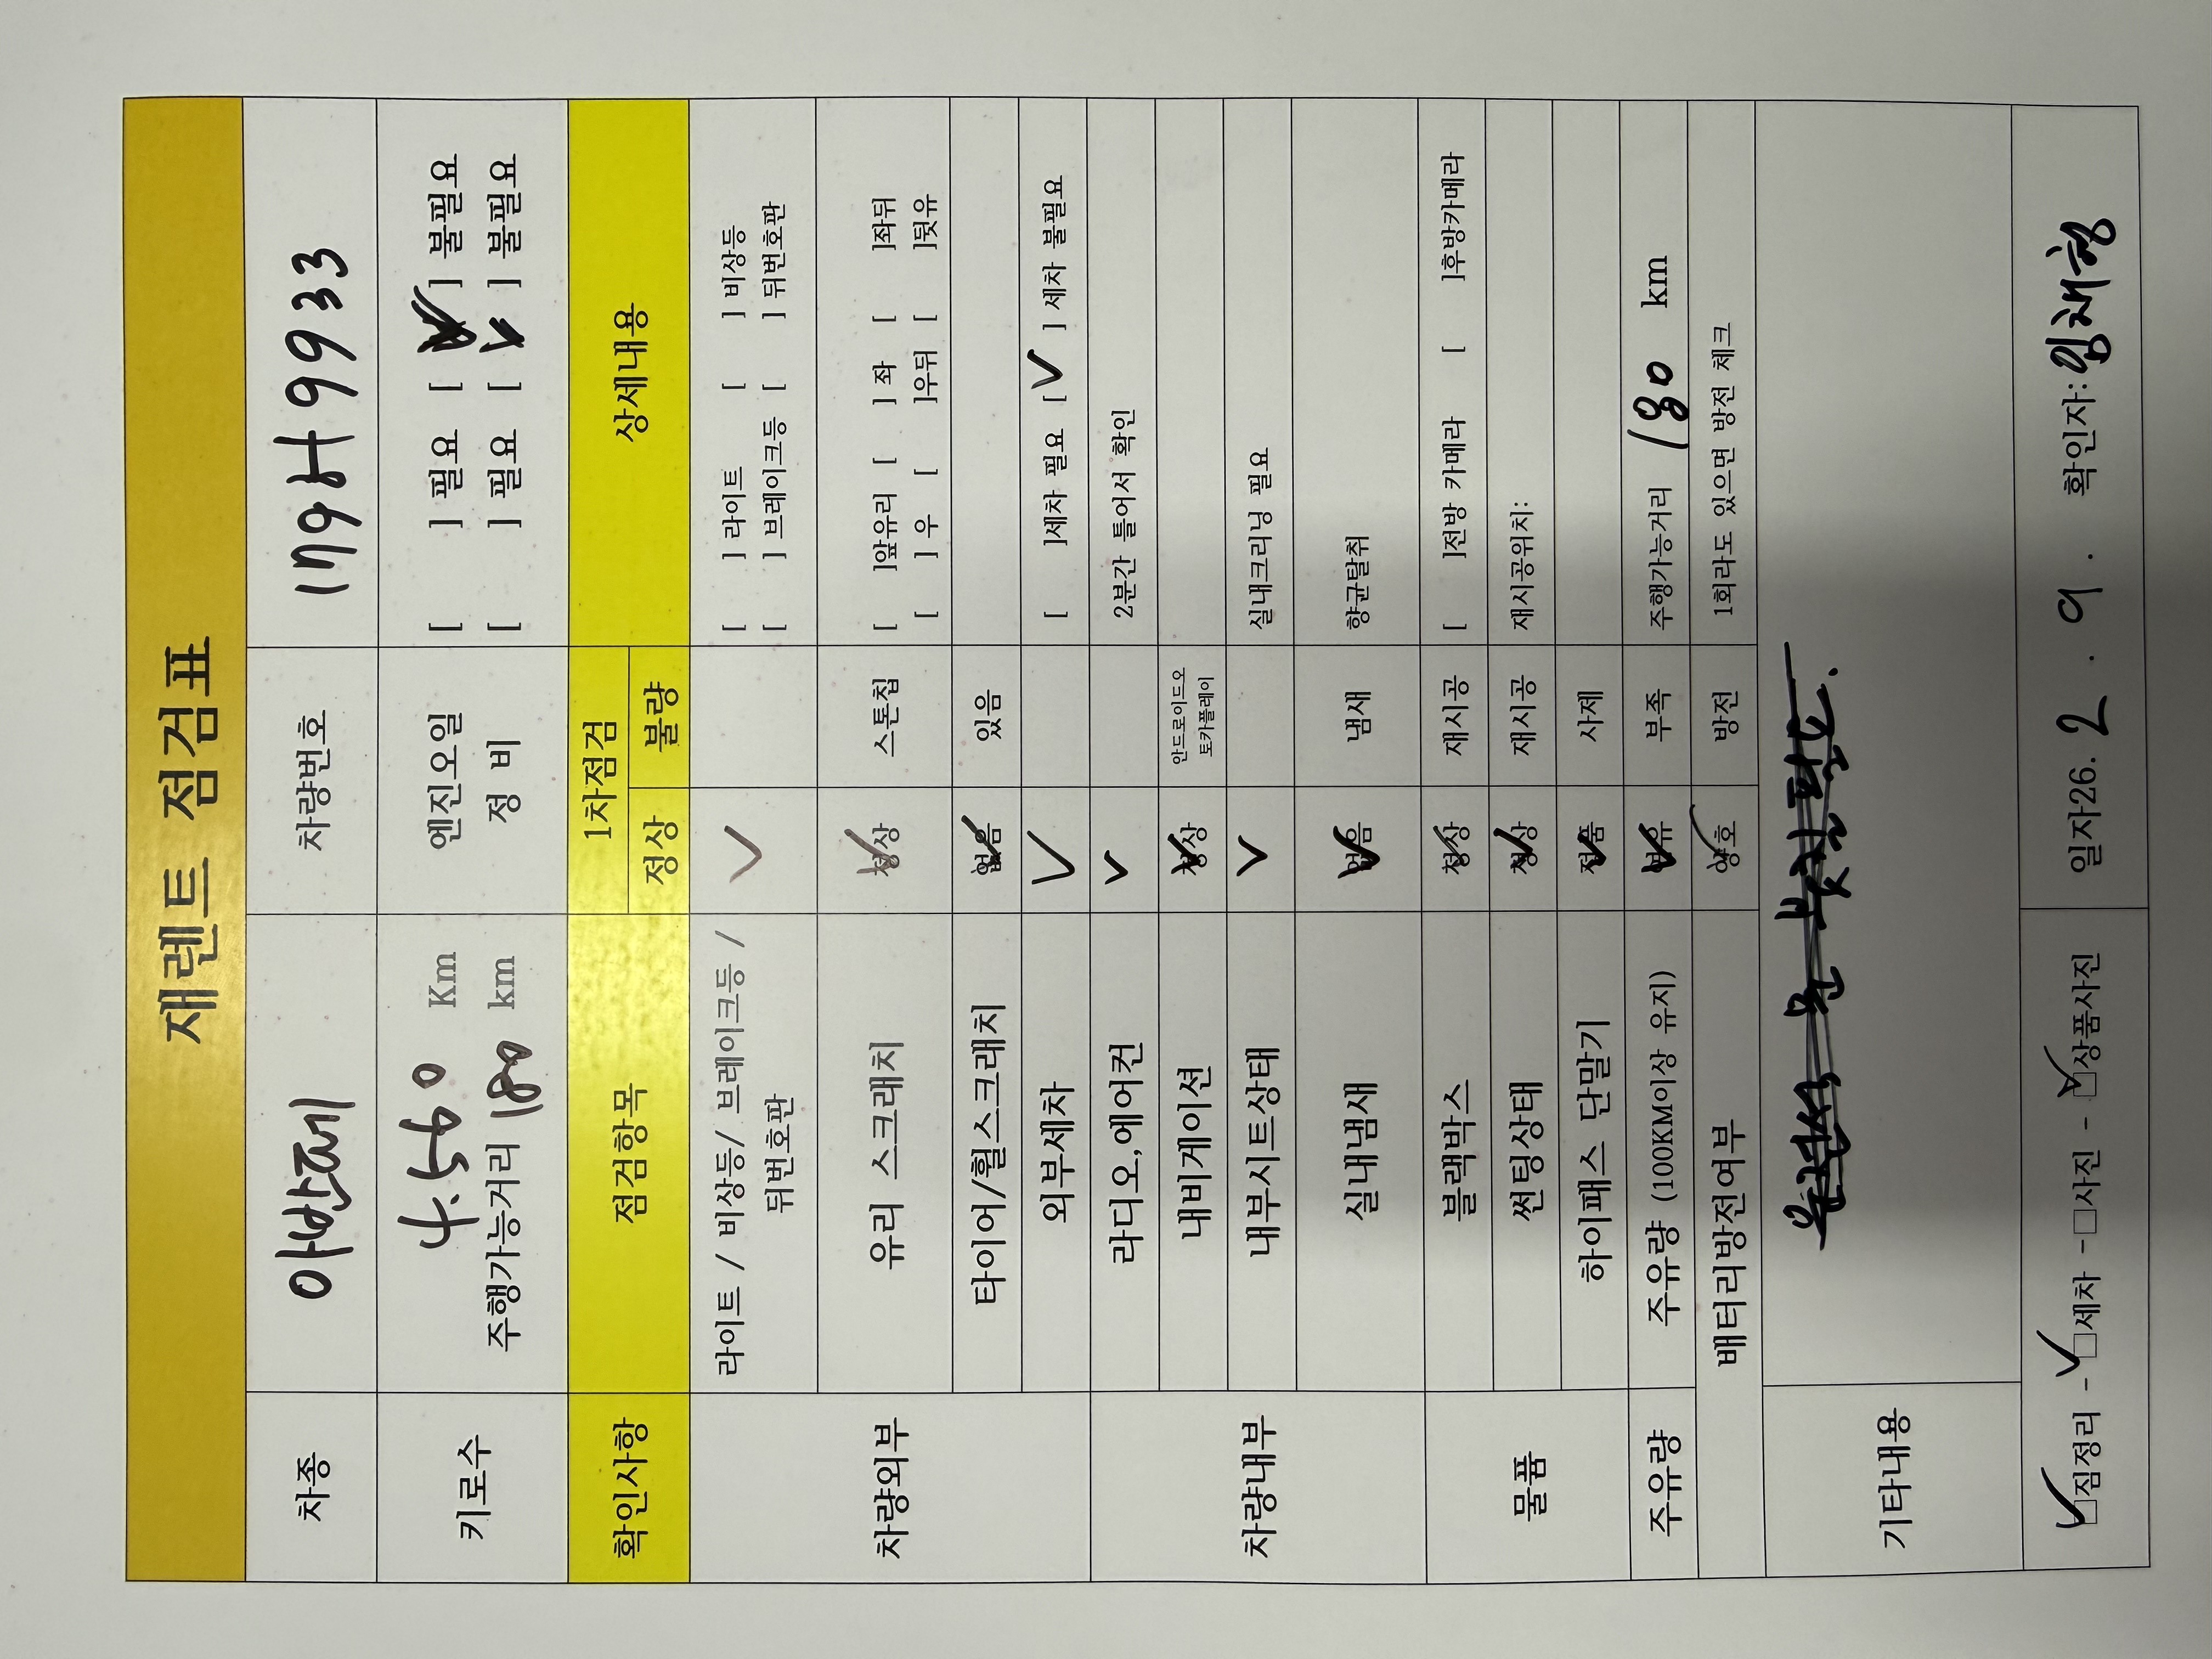 재렌트 점검표
차종 아반떼 차량번호 179하9933
키로수 4.560 Km 엔진오일 [ ] 필요 [ ✓ ] 불필요
주행가능거리 180 km 정 비 [ ] 필요 [ ✓ ] 불필요
확인사항 점검항목 1차점검 상세내용
정상 불량
차량외부 라이트 / 비상등/ 브레이크등 / ✓ [ ] 라이트 [ ] 비상등
뒤번호판 [ ] 브레이크등 [ ] 뒤번호판
유리 스크래치 정상 스톤칩 [ ]앞유리 [ ] 좌 [ ]좌뒤
[ ] 우 [ ]우뒤 [ ]뒷유
타이어/휠스크래치 없음 있음
외부세차 ✓ [ ]세차 필요 [ ✓ ] 세차 불필요
차량내부 라디오,에어컨 ✓ 2분간 틀어서 확인
내비게이션 정상 안드로이드오
토카플레이
내부시트상태 ✓ 실내크리닝 필요
실내냄새 없음 냄새 향균탈취
물품 블랙박스 정상 재시공 [ ]전방 카메라 [ ]후방카메라
썬팅상태 정상 재시공 재시공위치:
하이패스 단말기 정품 사제
주유량 주유량 (100KM이상 유지) 부족 주행가능거리 180 km
배터리방전여부 양호 방전 1회라도 있으면 방전 체크
기타내용
☑짐정리 - ☑세차 - □사진 - ☑상품사진 일자26. 2 . 9 . 확인자: 임채형